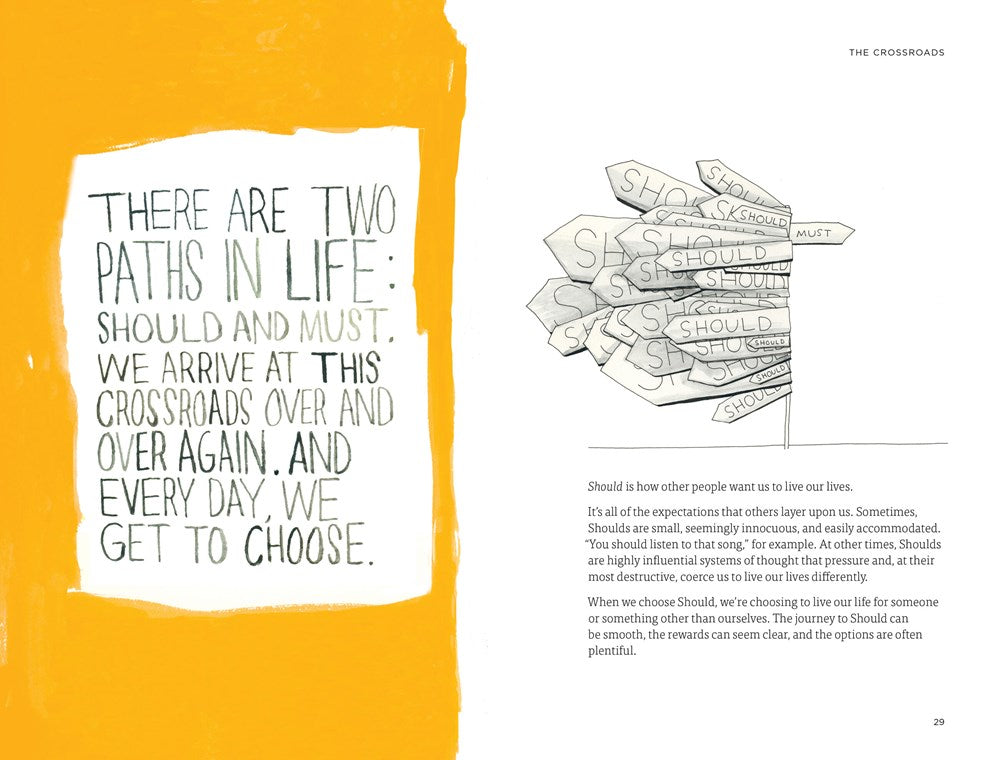 THERE ARE TWO
PATHS IN LIFE:
SHOULD AND MUST.
WE ARRIVE AT THIS
CROSSROADS OVER AND
OVER AGAIN. AND
EVERY DAY, WE
GET TO CHOOSE.
THE CROSSROADS
SHOULD
SHOULD
MUST
SHOULD
SHOULD
SHOULD
SHOULD
SHOULD
SHOULD
SHOULD
SHOULD
SHOULD
Should is how other people want us to live our lives.
It’s all of the expectations that others layer upon us. Sometimes,
Shoulds are small, seemingly innocuous, and easily accommodated.
“You should listen to that song,” for example. At other times, Shoulds
are highly influential systems of thought that pressure and, at their
most destructive, coerce us to live our lives differently.
When we choose Should, we’re choosing to live our life for someone
or something other than ourselves. The journey to Should can
be smooth, the rewards can seem clear, and the options are often
plentiful.
29